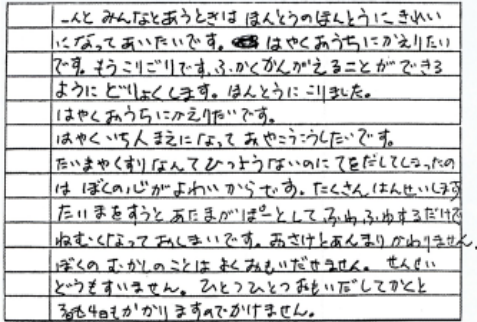 ーんと みんなとあうときは ほんとうのほんとうに きれい
になってあいたいです。 はやくおうちにかえりたい
です。もうこりごりです。ふかくかんがえることができる
ようにどりょくします。ほんとうにこりました。
はやくおうちにかえりたいです。
はやくいち人まえになって おやこうこうしたいです。
たいまやくすりなんてひつようないのに てをだしてしまったの
は ぼくの心がよわいからです。たくさんはんせいします
たいまをすうと あたまがぱーとして ふわふわするだけで
ねむくなっておしまいです。おさけとあんまりかわりません。
ぼくの むかしのことは よくおもいだせません。 せんせい
どうもすいません。 ひとつひとつおもいだしてかくと
3日も4日もかかりますのでかけません。